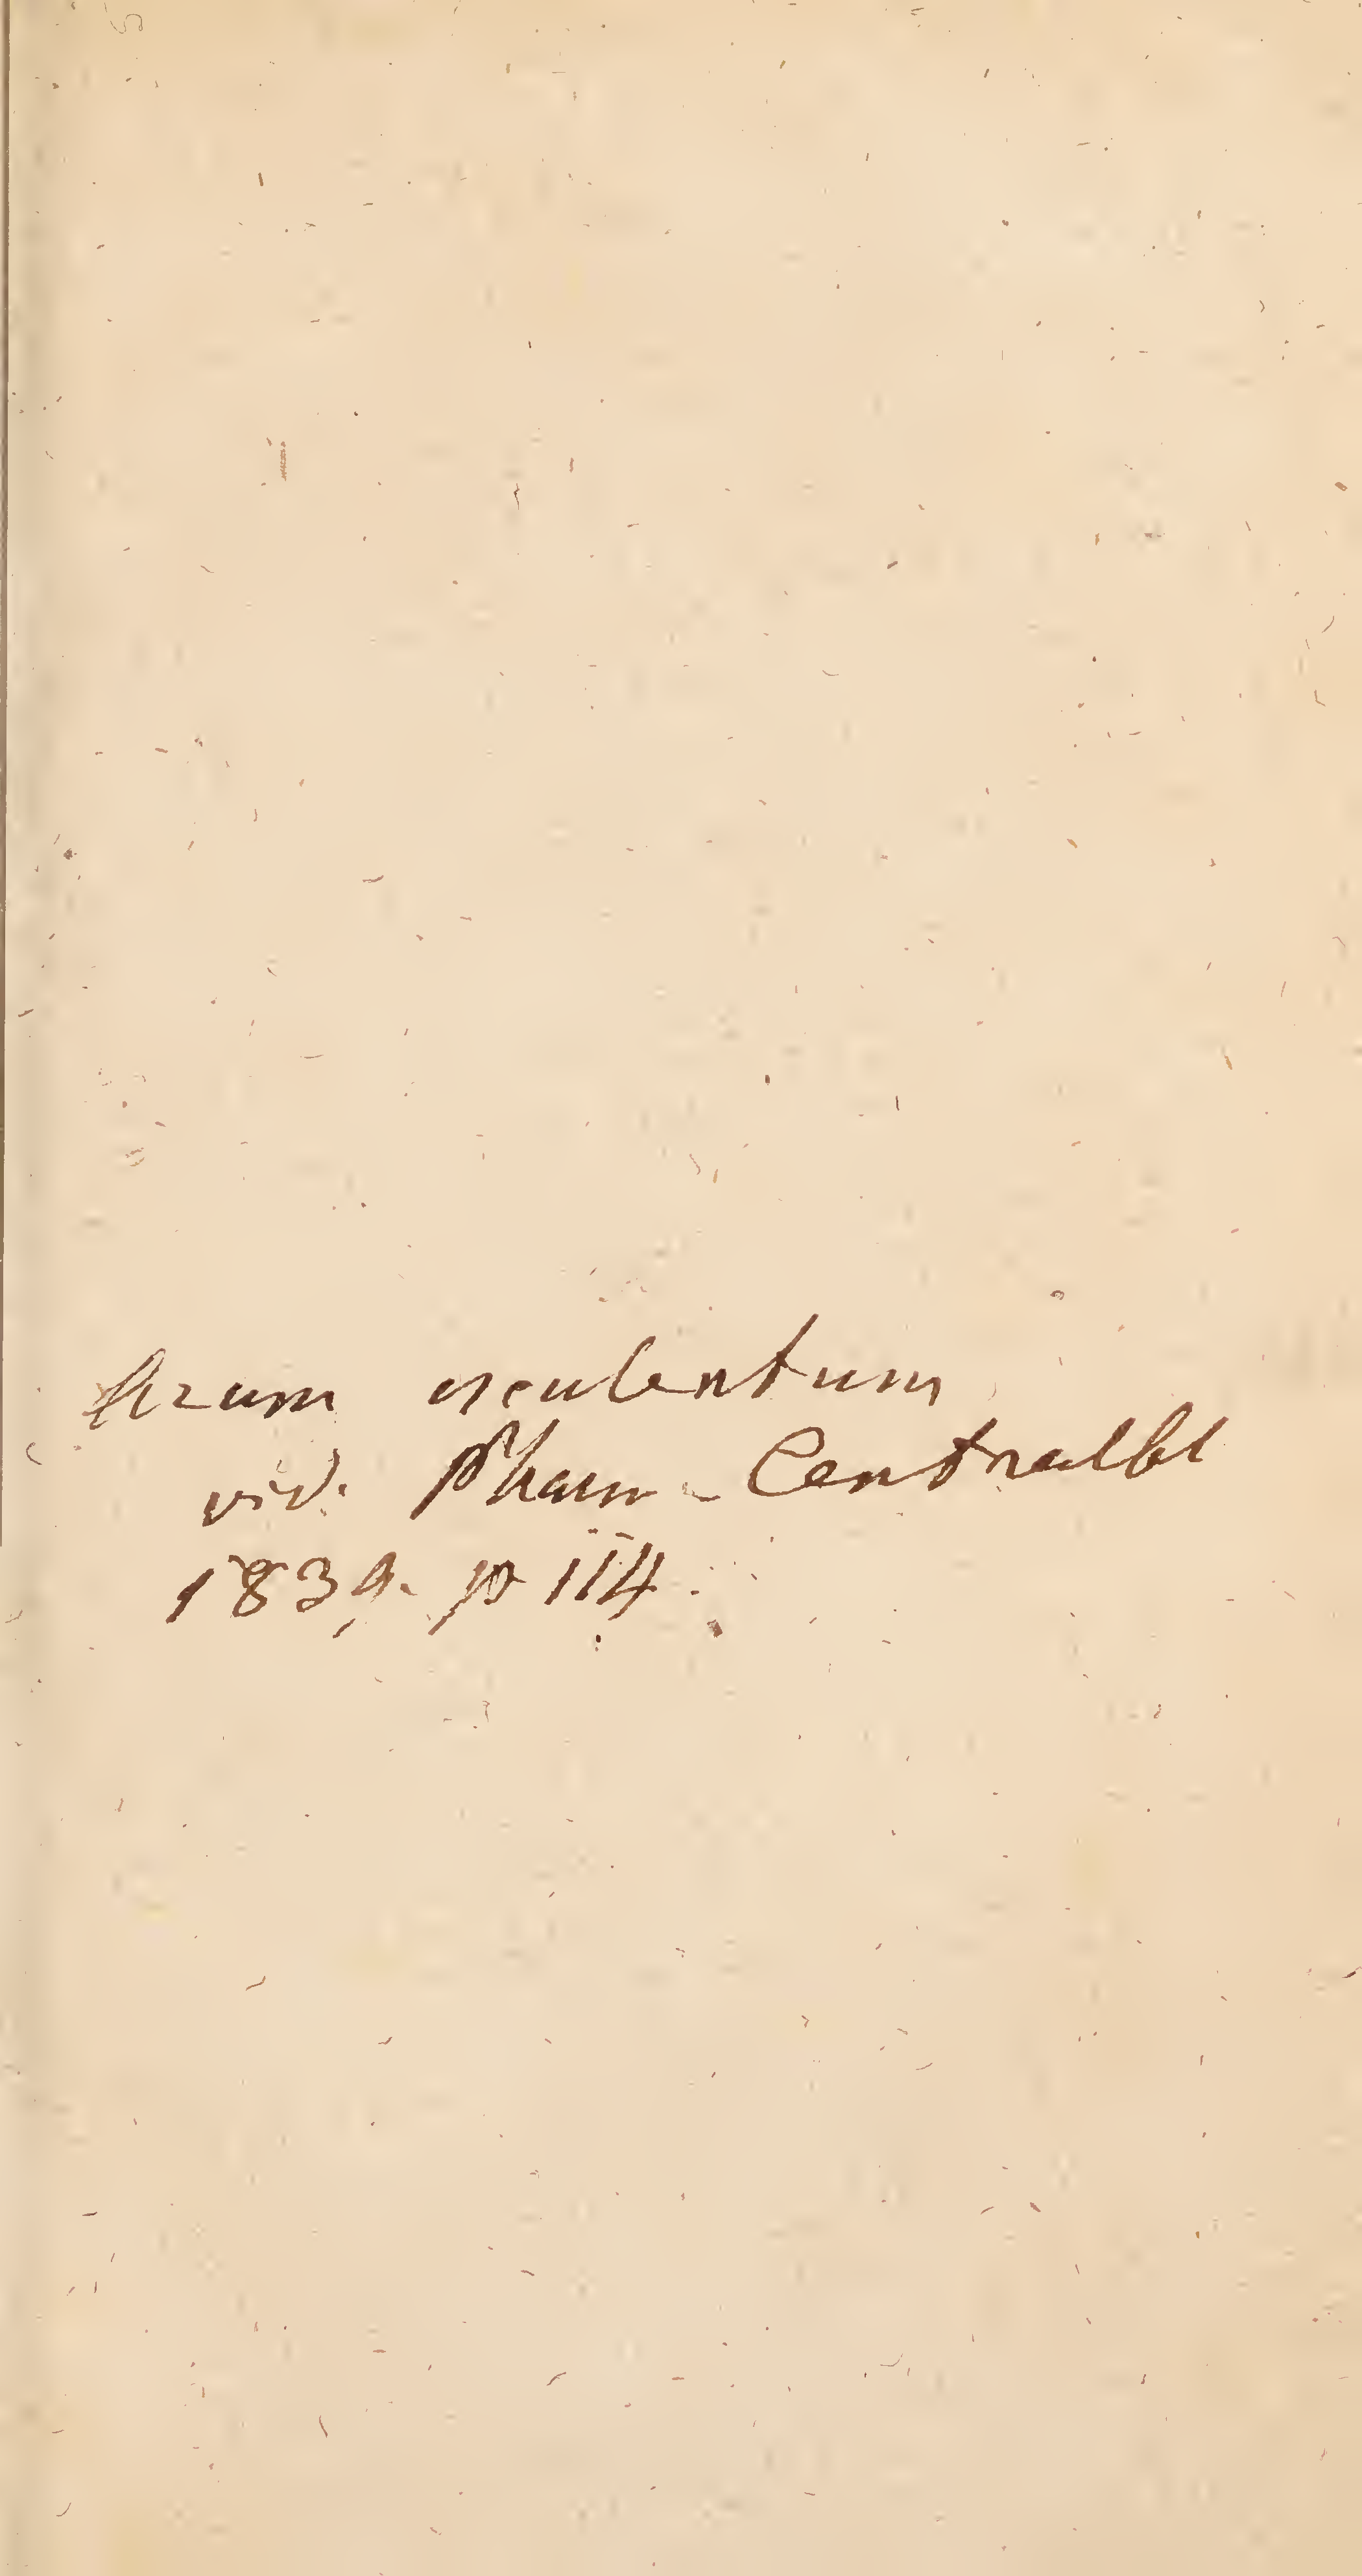 Arum esculentum
vid. Pharm. Centralbl
1839. p 114.